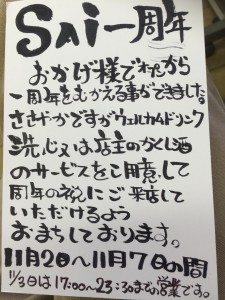 SAi一周年
おかげ様でわたから
一周年をむかえる事ができました。
ささやかですがウェルカムドリンク
洗心又は店主のかくし酒
のサービスをご用意して
周年の祝いにご来店して
いただけるよう
おまちしております。
11月2日〜11月7日の間
11/3日は17:00〜23:30までの営業です。